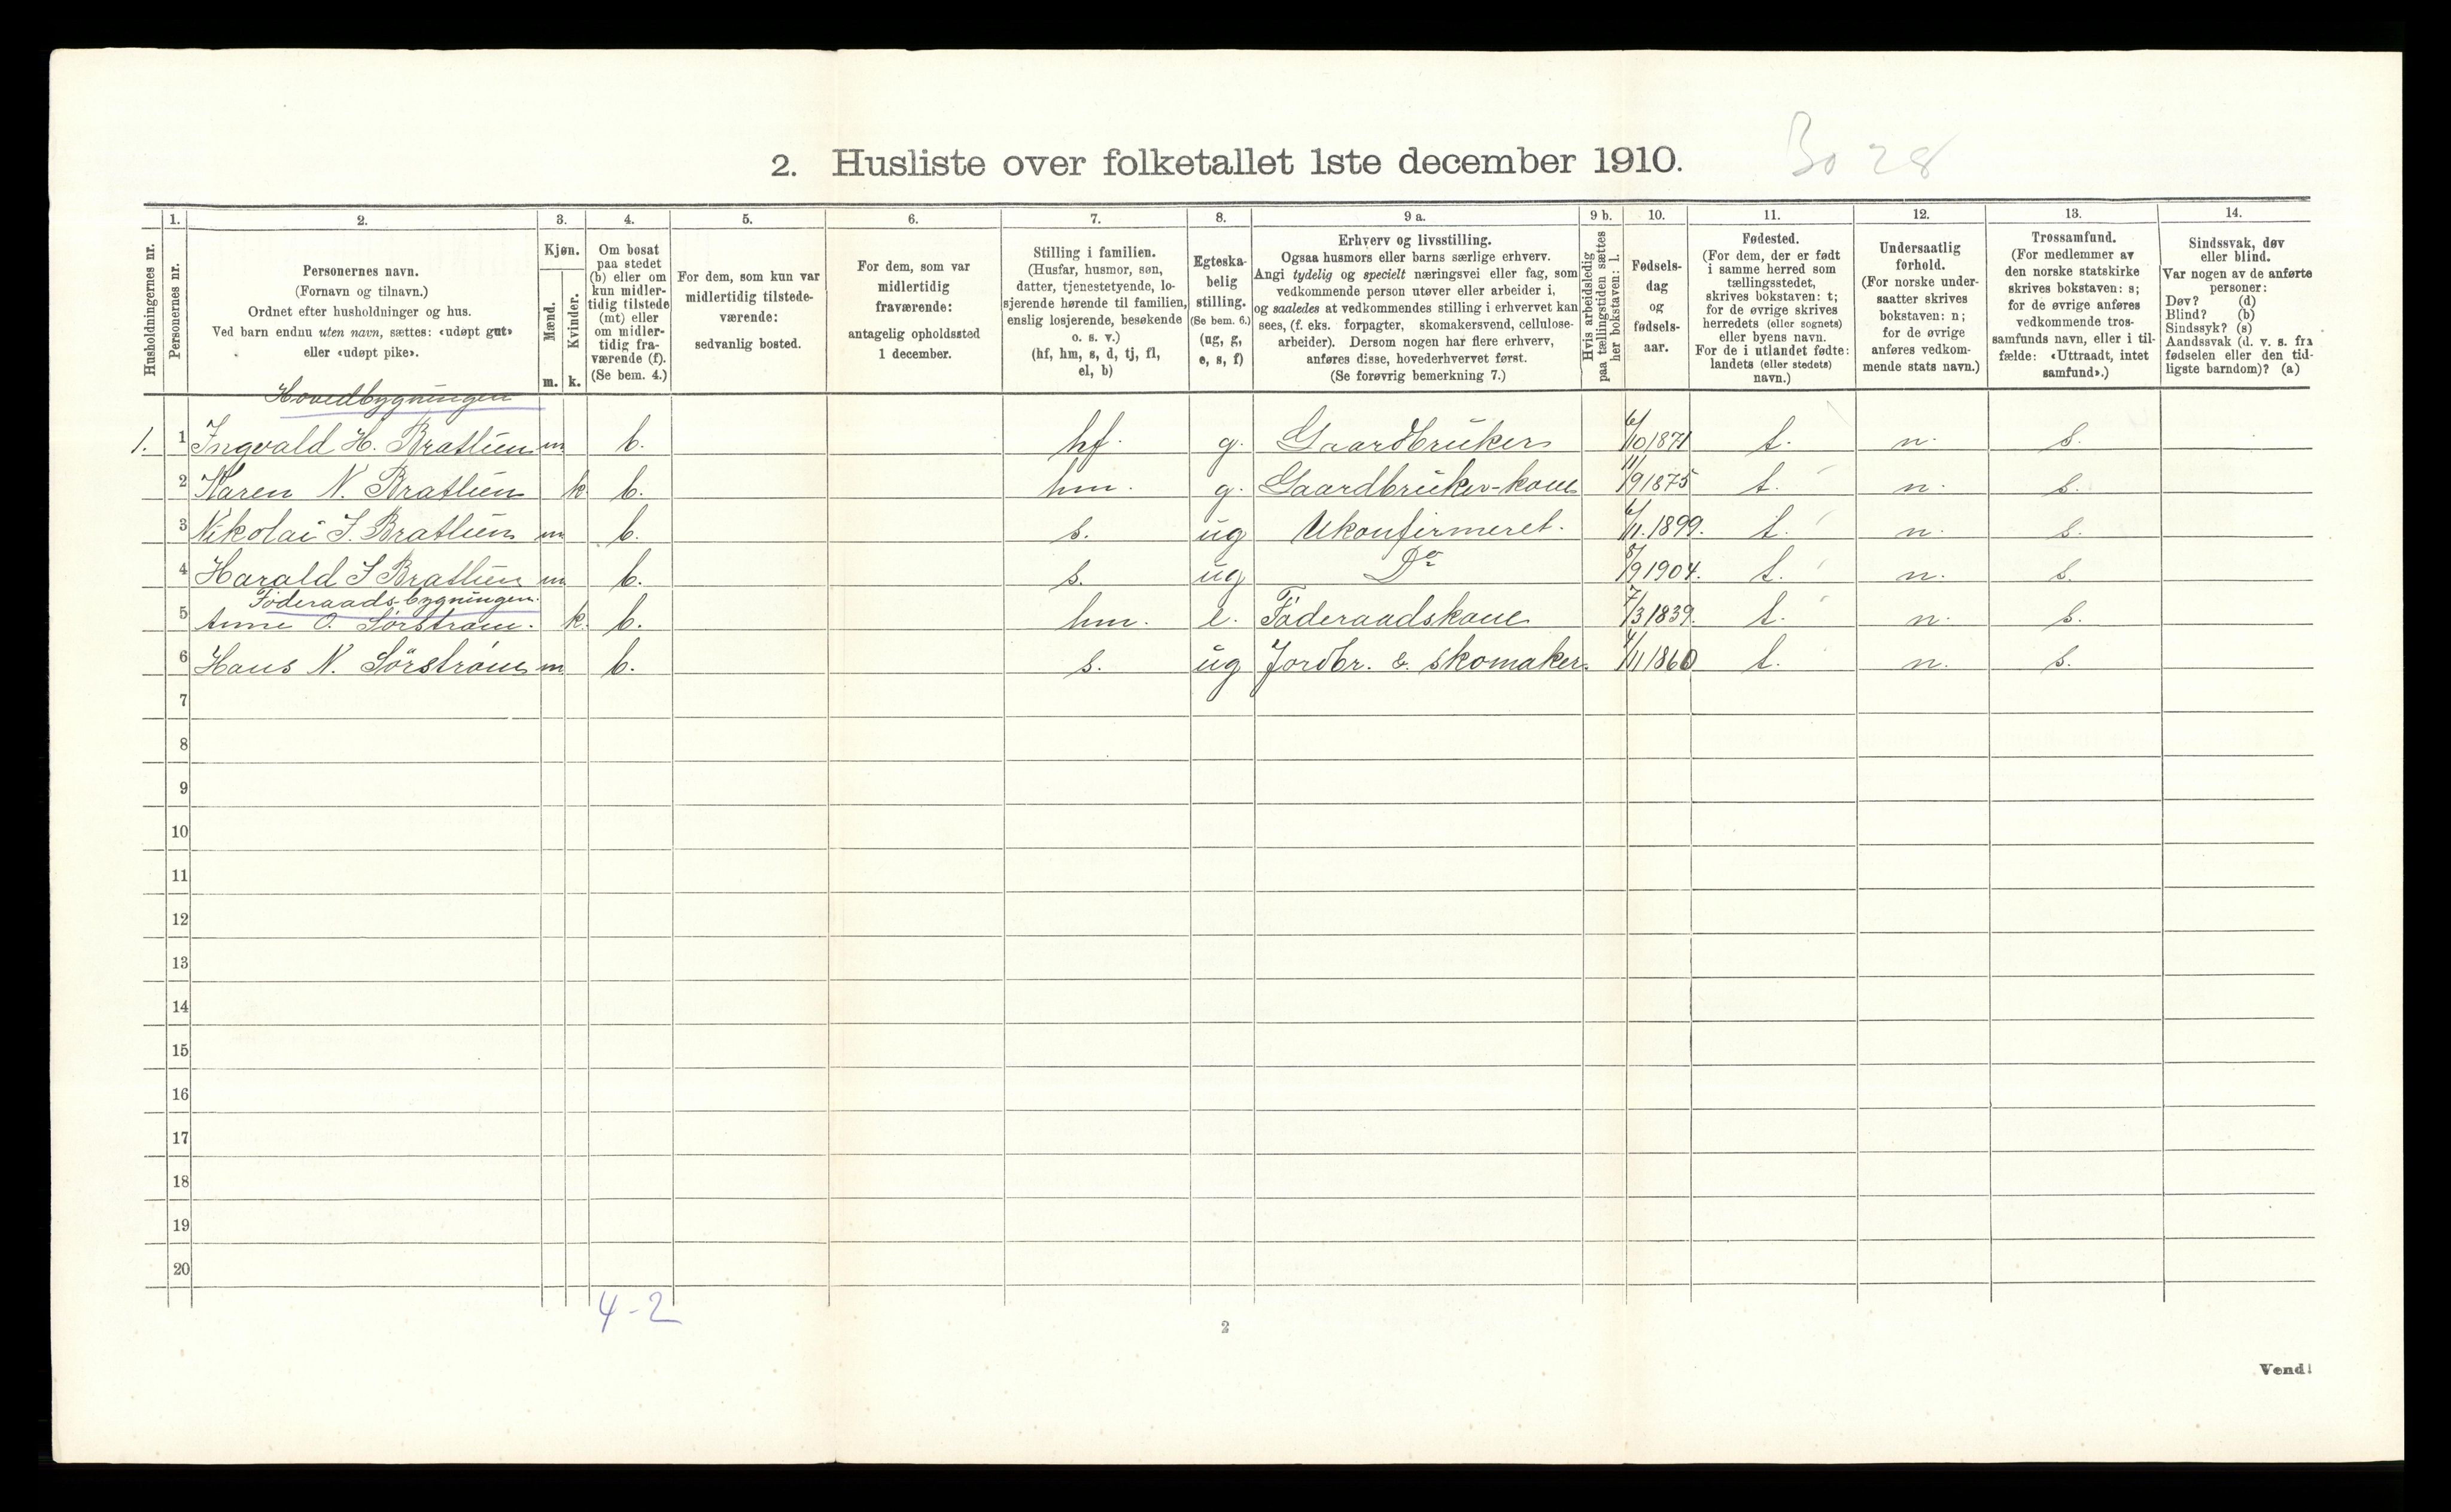 2. Husliste over folketallet 1ste december 1910.
Bo 28
Husholdningernes nr.
1.
Personernes nr.
2.
Personernes navn.
(Fornavn og tilnavn.)
Ordnet efter husholdninger og hus.
Ved barn endnu uten navn, sættes: «udøpt gut»
eller «udøpt pike».
3.
Kjøn.
Mænd.
Kvinder.
m. k.
4.
Om bosat
paa stedet
(b) eller om
kun midler-
tidig tilstede
(mt) eller
om midler-
tidig fra-
værende (f).
(Se bem. 4.)
5.
For dem, som kun var
midlertidig tilstede-
værende:
sedvanlig bosted.
6.
For dem, som var
midlertidig
fraværende:
antagelig opholdssted
1 december.
7.
Stilling i familien.
(Husfar, husmor, søn,
datter, tjenestetyende, lo-
sjerende hørende til familien,
enslig losjerende, besøkende
o. s. v.)
(hf, hm, s, d, tj, fl,
el, b)
8.
Egteska-
belig
stilling.
(Se bem. 6.)
(ug, g,
e, s, f)
9 a.
Erhverv og livsstilling.
Ogsaa husmors eller barns særlige erhverv.
Angi tydelig og specielt næringsvei eller fag, som
vedkommende person utøver eller arbeider i,
og saaledes at vedkommendes stilling i erhvervet kan
sees, (f. eks. forpagter, skomakersvend, cellulose-
arbeider). Dersom nogen har flere erhverv,
anføres disse, hovederhvervet først.
(Se forøvrig bemerkning 7.)
9 b.
Hvis arbeidsledig
paa tællingstiden sættes
her bokstaven: l.
10.
Fødsels-
dag
og
fødsels-
aar.
11.
Fødested.
(For dem, der er født
i samme herred som
tællingsstedet,
skrives bokstaven: t;
for de øvrige skrives
herredets (eller sognets)
eller byens navn.
For de i utlandet fødte:
landets (eller stedets)
navn.)
12.
Undersaatlig
forhold.
(For norske under-
saatter skrives
bokstaven: n;
for de øvrige
anføres vedkom-
mende stats navn.)
13.
Trossamfund.
(For medlemmer av
den norske statskirke
skrives bokstaven: s;
for de øvrige anføres
vedkommende tros-
samfunds navn, eller i til-
fælde: «Uttraadt, intet
samfund».)
14.
Sindssvak, døv
eller blind.
Var nogen av de anførte
personer:
Døv? (d)
Blind? (b)
Sindssyk? (s)
Aandssvak (d. v. s. fra
fødselen eller den tid-
ligste barndom)? (a)
Hovedbygningen
1. 1 Ingvald H. Bratlien m b. hf. g. Gaardbruker 6/10 1871 t. n. s.
2 Karen N. Bratlien k b. hm. g. Gaardbruker-kone 11/9 1875 t. n. s.
3 Nikolai I. Bratlien m b. s. ug Ukonfirmeret. 6/11. 1899. t. n. s.
4 Harald I Bratlien m b. s. ug Do 8/9 1904. t. n. s.
Föderaads-bygningen.
5 Anne O. Sörström. k. b. hm. e. Föderaadskone 7/3 1839. t. n. s.
6 Hans N. Sörström m b. s. ug Jordbr. & skomaker. 4/11 1860 t. n. s.
7
8
9
10
11
12
13
14
15
16
17
18
19
20
4-2
2
Vend!